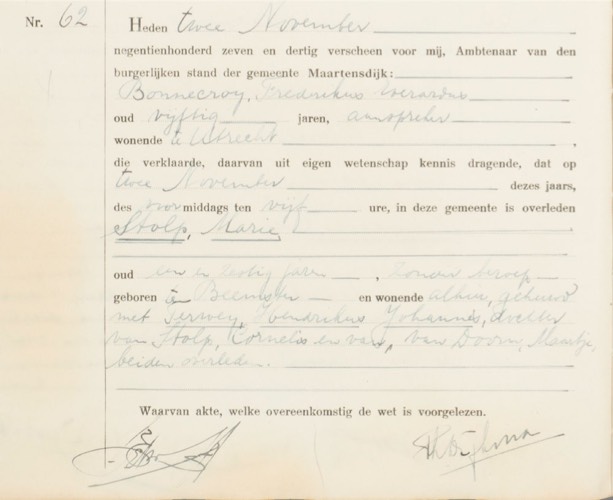 Nr. 62 Heden twee November
negentienhonderd zeven en dertig verscheen voor mij, Ambtenaar van den
burgerlijken stand der gemeente Maartensdijk:
Bonnecroy, Fredrikus Everardus
oud vijftig jaren, aanspreker
wonende te Utrecht ,
die verklaarde, daarvan uit eigen wetenschap kennis dragende, dat op
twee November dezes jaars,
des voormiddags ten vijf ure, in deze gemeente is overleden
Stolp, Marie
oud een en zestig jaren , zonder beroep
geboren te Beemster en wonende alhier, gehuwd
met Terwey, Hendrikus Johannes, dochter
van Stolp, Kornelis en van, van Doorn, Maartje,
beiden overleden.
Waarvan akte, welke overeenkomstig de wet is voorgelezen.